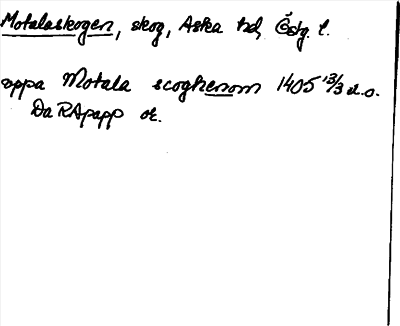 Motalaskogen, skog, Aska hd, Östg. l.
oppa Motala scoghenom 1405 13/3 d.o.
Da RApapp or.